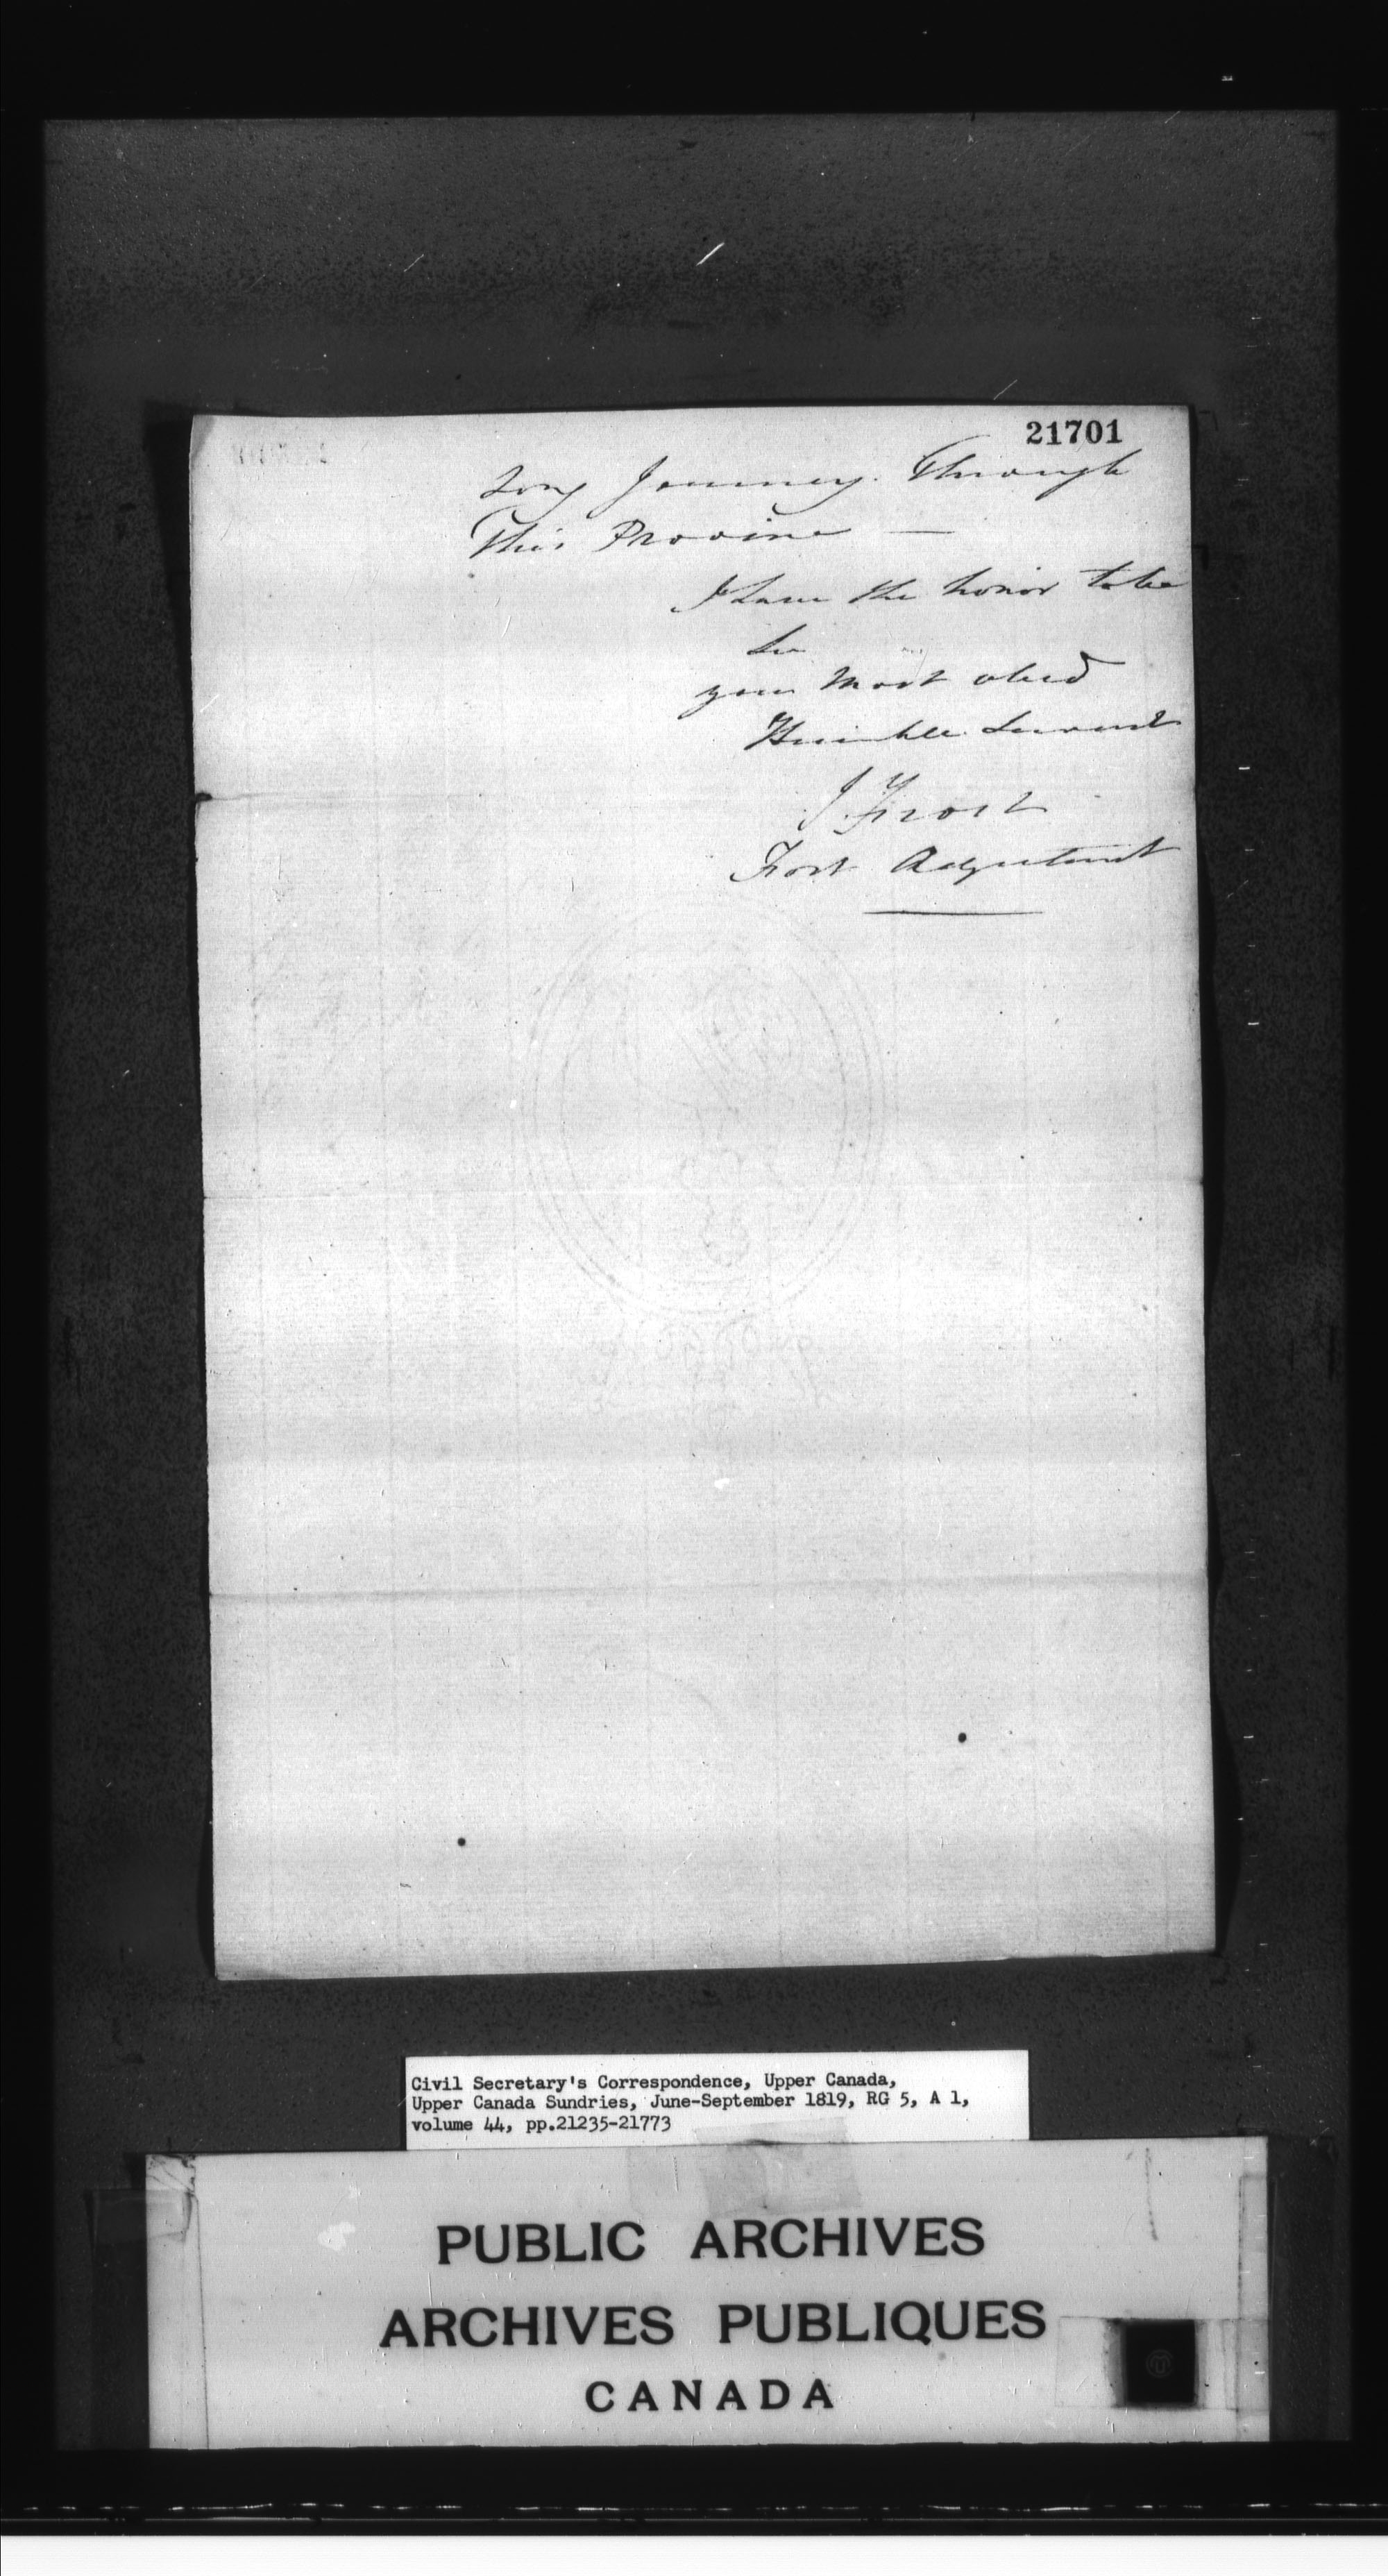 21701
Long Journey. Through
This Province —
I have the honor to be
Sir
your Most obed
Humble Servant
J. Frost
Fort Adjutant
Civil Secretary's Correspondence, Upper Canada,
Upper Canada Sundries, June-September 1819, RG 5, A 1,
volume 44, pp.21235-21773
PUBLIC ARCHIVES
ARCHIVES PUBLIQUES
CANADA